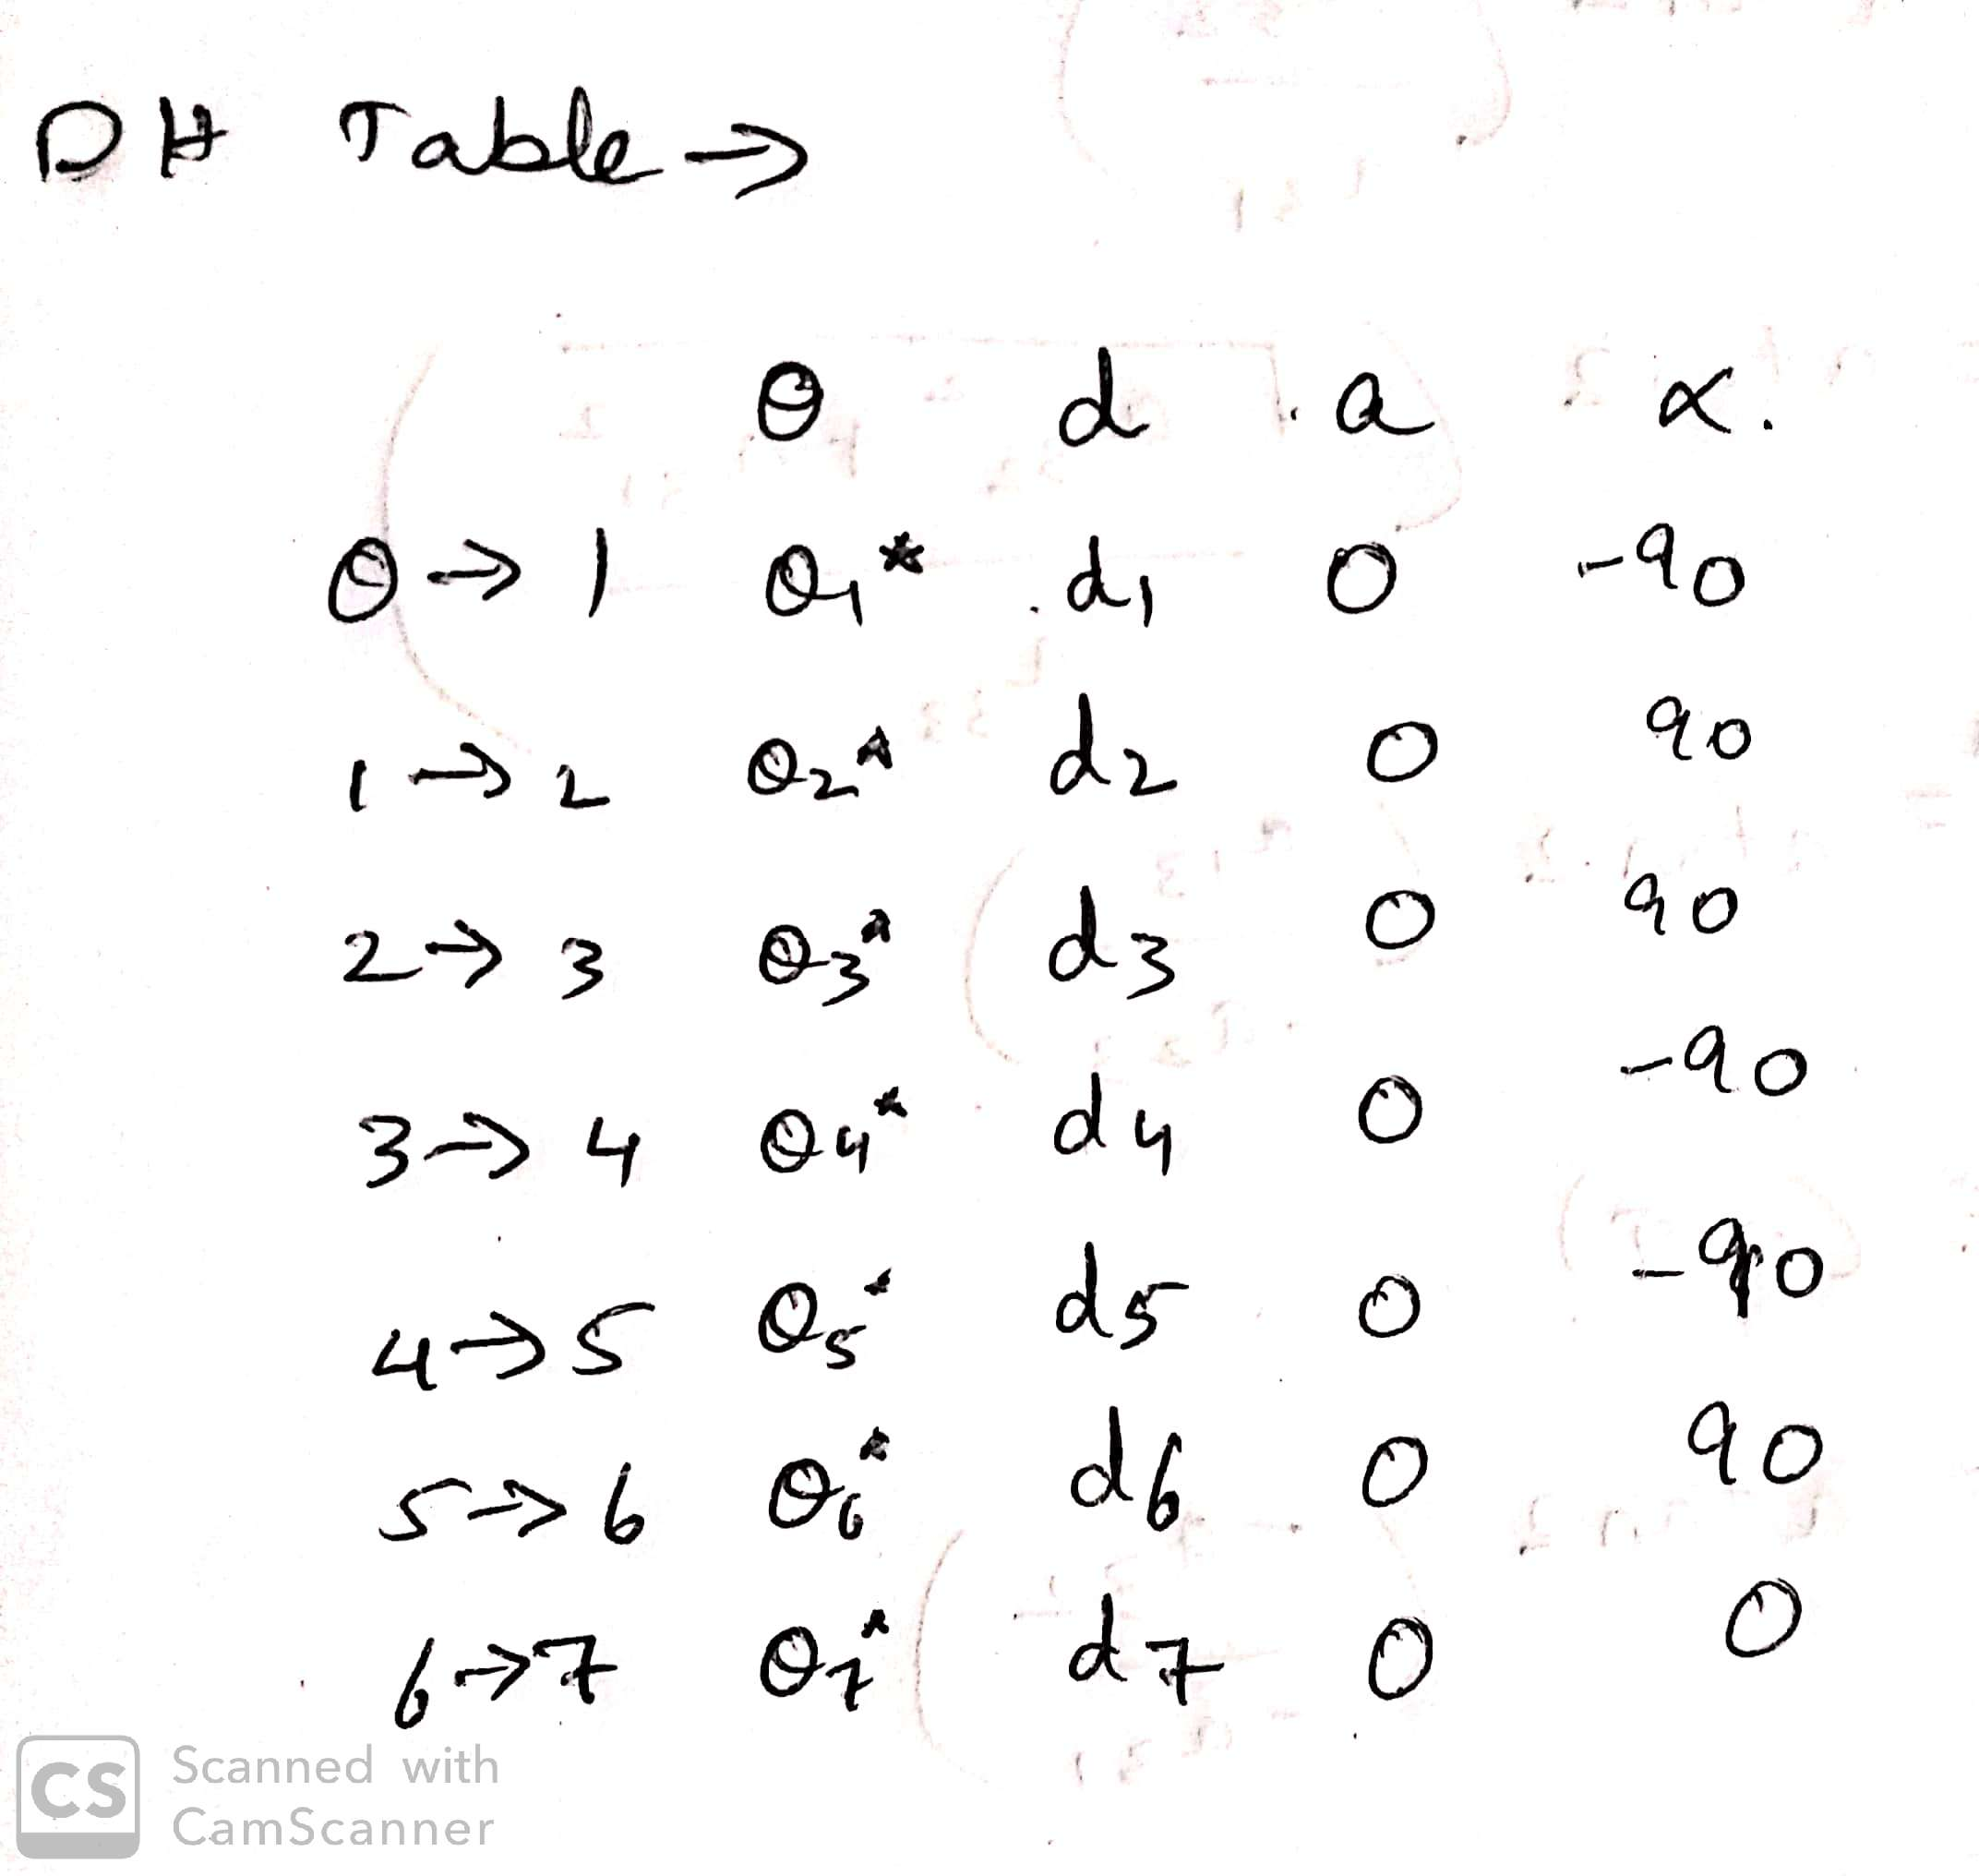 DH Table →
θ d a α.
0 → 1 θ1* d1 0 -90
1 → 2 θ2* d2 0 90
2 → 3 θ3* d3 0 90
3 → 4 θ4* d4 0 -90
4 → 5 θ5* d5 0 -90
5 → 6 θ6* d6 0 90
6 → 7 θ7* d7 0 0
CS Scanned with
CamScanner